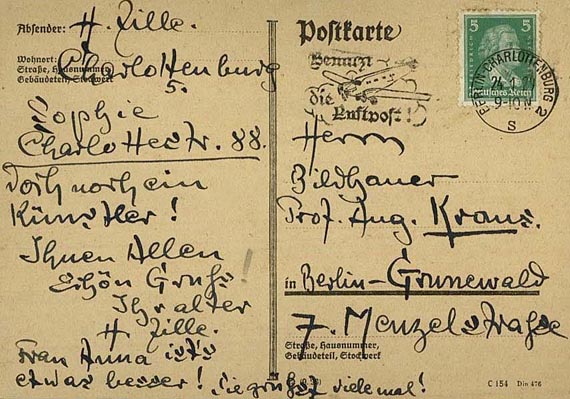 Absender: H. Zille.
Wohnort:
Straße, Hausnummer,
Gebäudeteil, Stockwerk
Charlottenburg
5.
Sophie
Charlottestr. 88.
Doch noch ein
Künstler!
Ihnen Allen
Schön Gruß!
Ihr alter
H. Zille.
Frau Anna ists
etwas besser! Sie grüßt viele mal!
Postkarte
Benutzt
die
Luftpost!
5 5
Deutsches Reich
BERLIN-CHARLOTTENBURG 2
9-10 V
S
Herrn
Bildhauer
Prof. Aug. Kraus.
in Berlin-Grunewald
7. Menzelstraße
Straße, Hausnummer,
Gebäudeteil, Stockwerk
C 154 Din 476